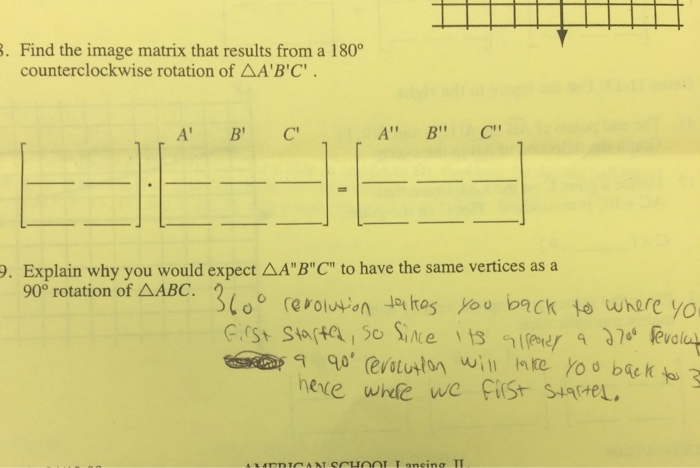 8. Find the image matrix that results from a 180°
counterclockwise rotation of △A'B'C' .
A' B' C' A'' B'' C''
· =
9. Explain why you would expect △A"B"C" to have the same vertices as a
90° rotation of △ABC.
360° revolution takes you back to where yo
first started, so since its already a 270° revolut
a 90° revolution will take you back to 3
hence where we first started.
AMERICAN SCHOOL Lansing, IL